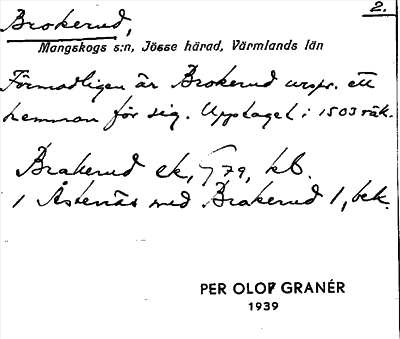 Brokerud, 2.
Mangskogs s:n, Jösse härad, Värmlands län
Förmodligen är Brokerud urspr. ett
hemman för sig. Upptaget i 1503 räk.
Brakerud ek, G 79, kb.
1 Åstenäs med Brakerud 1, bek.
PER OLOF GRANÉR
1939